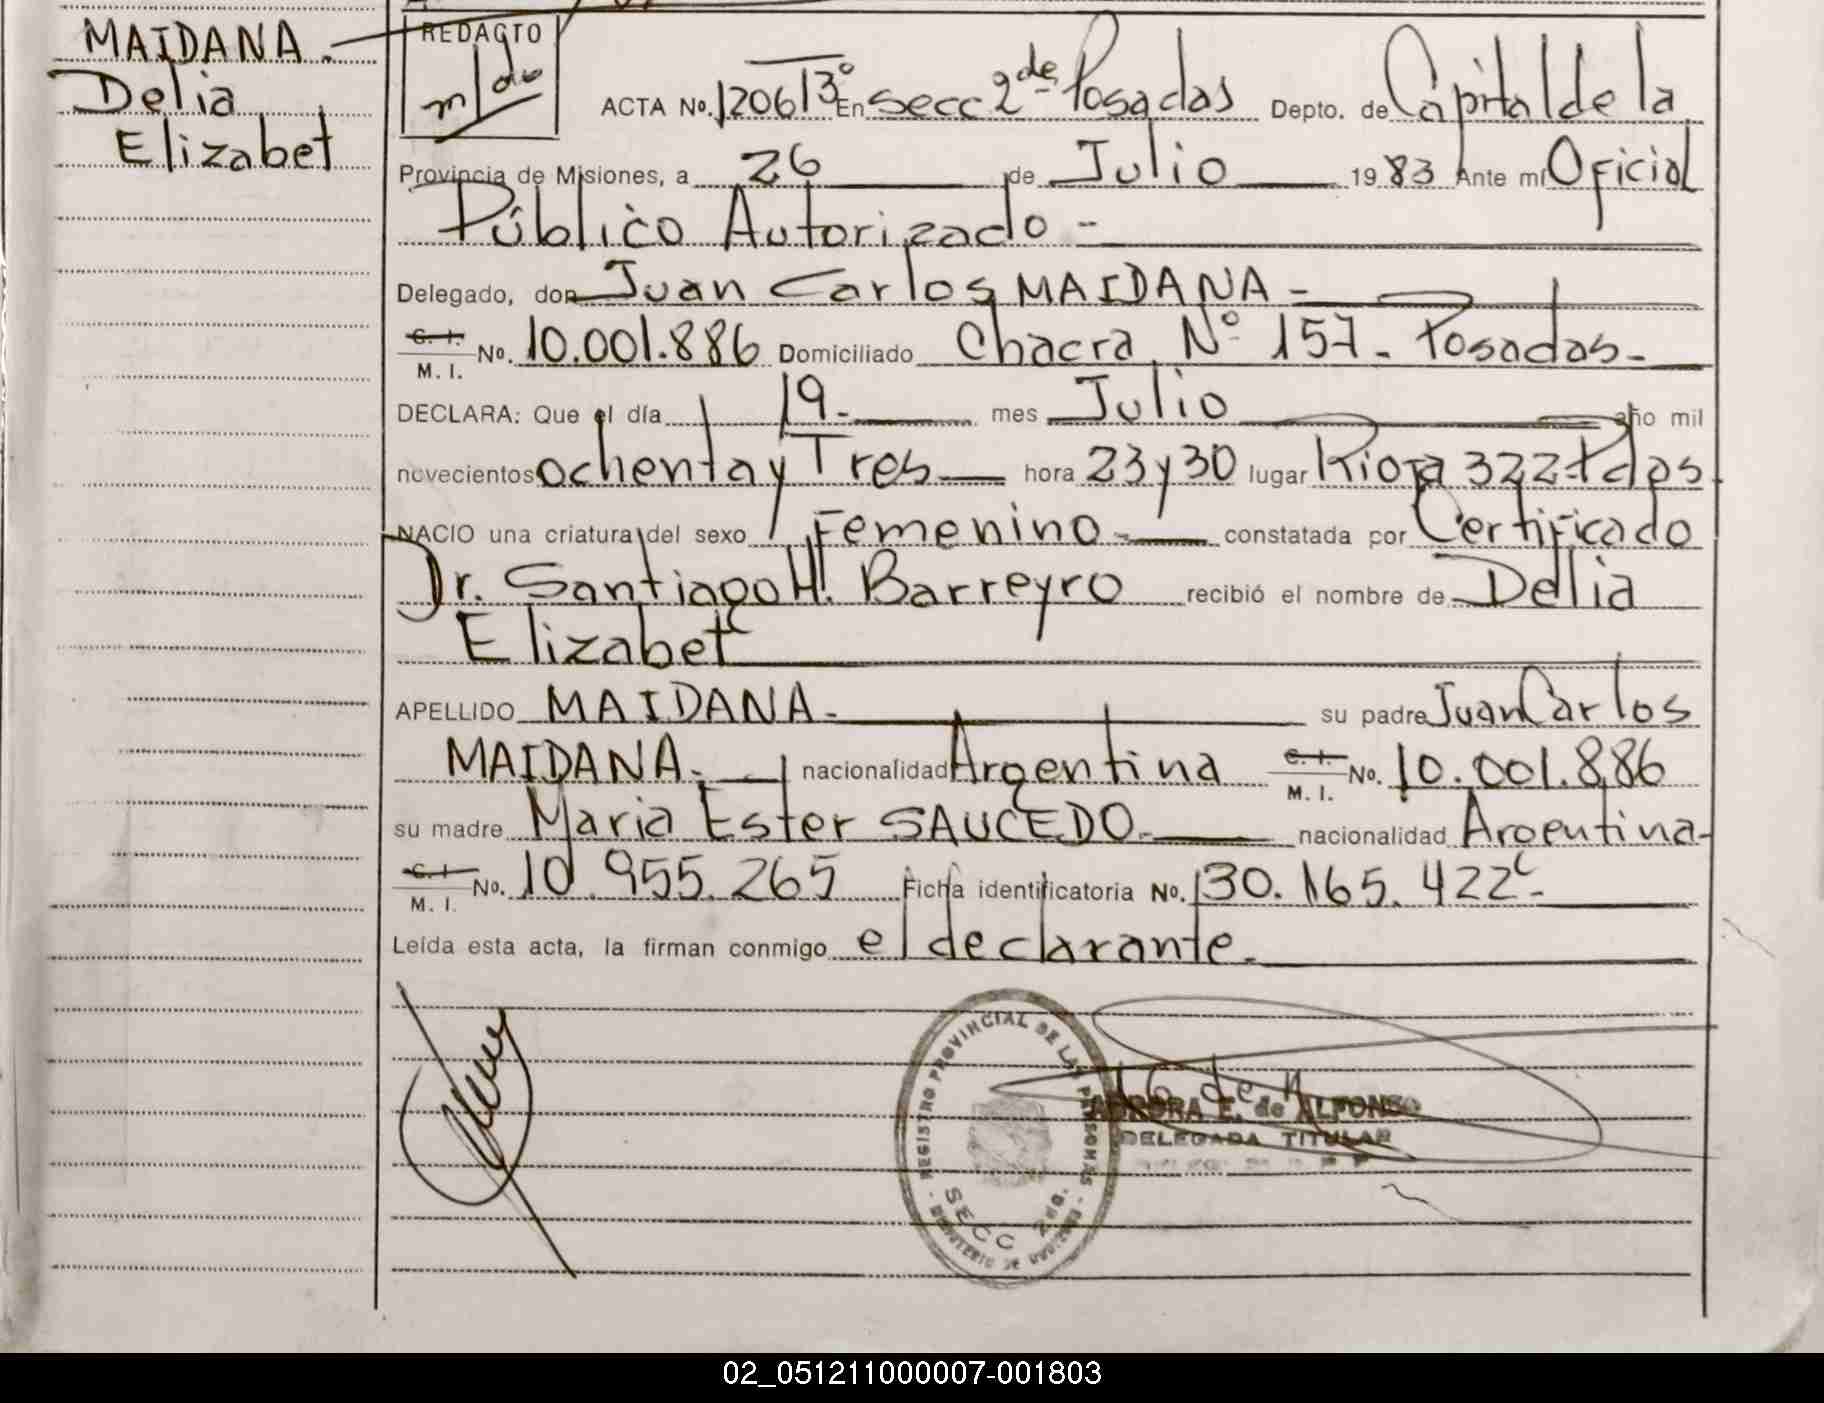 MAIDANA.
Delia
Elizabet
REDACTO
ACTA No. 1206 T3º En Secc 2da Posadas Depto. de Capital de la
Provincia de Misiones, a 26 de Julio 1983 Ante mí Oficial
Público Autorizado -
Delegado, don Juan Carlos MAIDANA -
C. I. M. I. No. 10.001.886 Domiciliado Chacra Nº 157 - Posadas -
DECLARA: Que el día 19- mes Julio año mil
novecientos ochenta y Tres hora 23 y 30 lugar Rioja 322 - Pdas
NACIO una criatura del sexo Femenino - constatada por Certificado
Dr. Santiago H. Barreyro recibió el nombre de Delia
Elizabet
APELLIDO MAIDANA - su padre Juan Carlos
MAIDANA. nacionalidad Argentina C. I. M. I. No. 10.001.886
su madre Maria Ester SAUCEDO. nacionalidad Argentina -
C. I. M. I. No. 10.955.265 Ficha identificatoria No. 30.165.422 -
Leída esta acta, la firman conmigo el declarante.
REGISTRO PROVINCIAL DE LAS PERSONAS
SECC 2da.
AURORA E. de ALFONSO
DELEGADA TITULAR
02_051211000007-001803